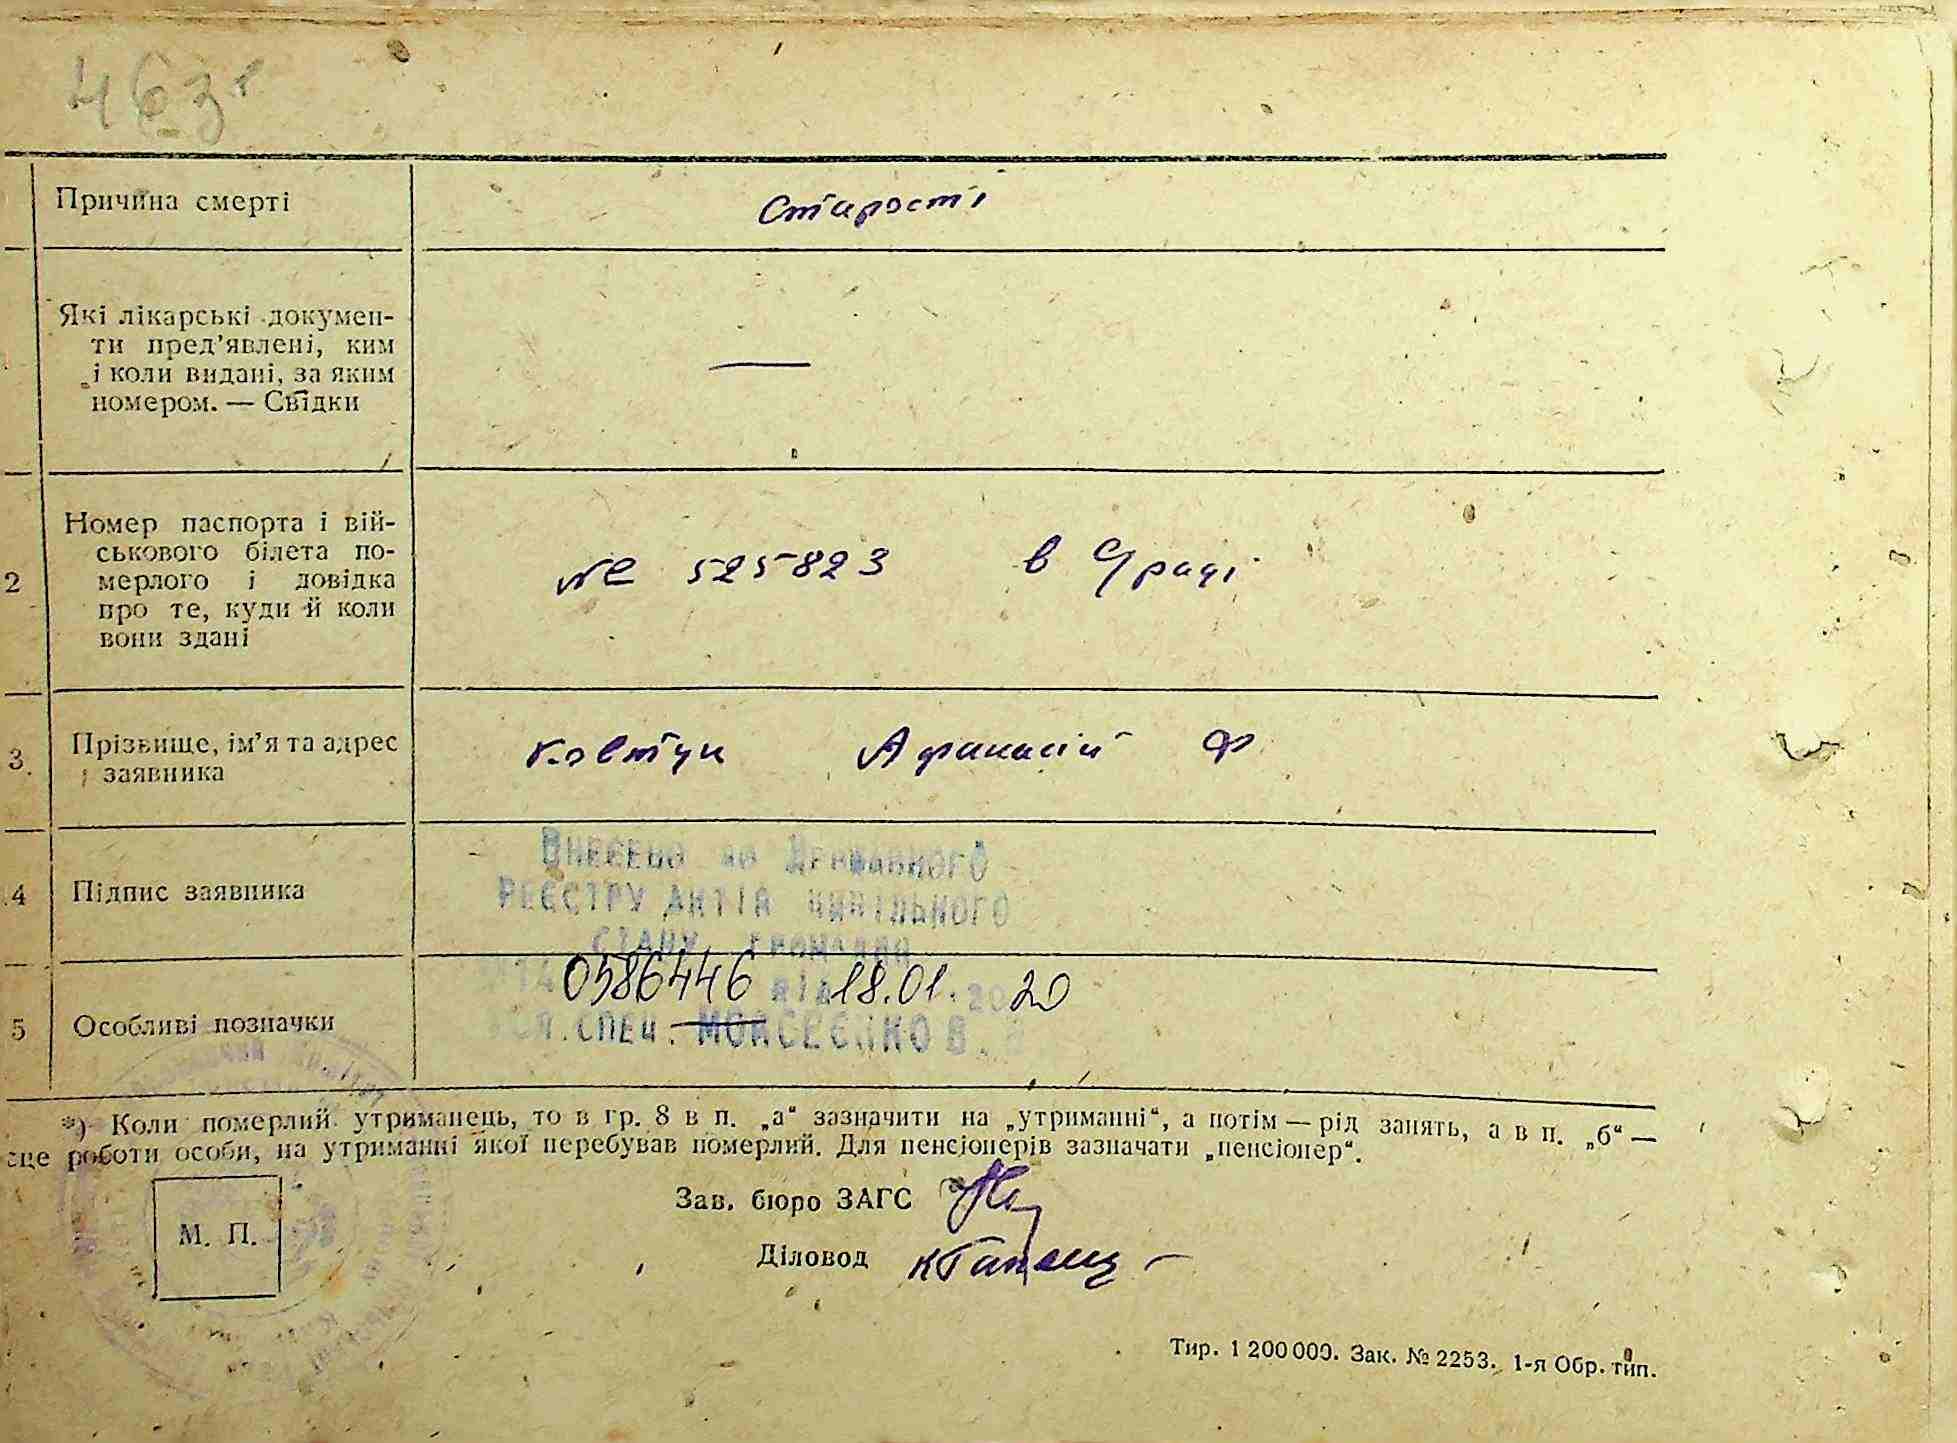 463
Причина смерті
Старості
Які лікарські докумен-
ти пред'явлені, ким
і коли видані, за яким
номером. — Свідки
—
2
Номер паспорта і вій-
ськового білета по-
мерлого і довідка
про те, куди й коли
вони здані
№ 525823 в
3
Прізвище, ім'я та адрес
заявника
Ковтун Афанасій Ф
4
Підпис заявника
Внесено до Державного
реєстру актів цивільного
стану громадян
0586446 від 18.01.2020
5
Особливі позначки
спец. Моисеєнко В.
*) Коли померлий утриманець, то в гр. 8 в п. „а“ зазначити на „утриманні“, а потім — рід занять, а в п. „б“ —
сце роботи особи, на утриманні якої перебував померлий. Для пенсіонерів зазначати „пенсіонер“.
М. П.
Зав. бюро ЗАГС
Діловод
Тир. 1 200 000. Зак. № 2253. 1-я Обр. тип.